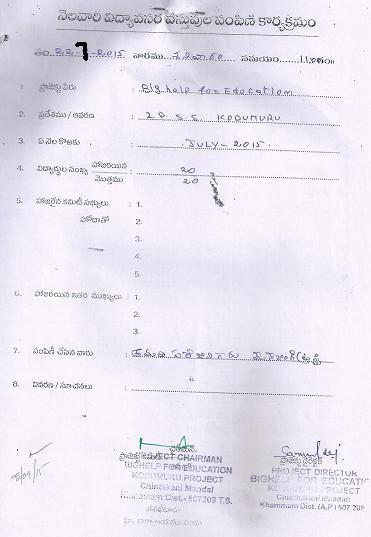 నెలవారీ విద్యావసర వస్తువుల పంపిణి కార్యక్రమం
తేది 22-7-2015 వారము శనివారం సమయం 11.00గం॥
1. ప్రాజెక్టు పేరు : Big help for Education
2. ప్రదేశము / ఆవరణ : Z.P.S.S KODUMURU
3. ఏ నెల కొఱకు : JULY-2015.
4. విద్యార్థుల సంఖ్య హాజరయిన : 20
మొత్తము 20
5. హాజరైన కమిటీ సభ్యులు : 1.
హోదాతో 2.
3.
4.
5.
6. హాజరయిన ఇతర ముఖ్యులు : 1.
2.
3.
7. పంపిణీ చేసిన వారు :
8. వివరణ / సూచనలు :
చైర్మన్
PROJECT CHAIRMAN
BIGHELP FOR EDUCATION
KODUMURU PROJECT
Chintakani Mandal
Khammam Dist.- 507208 T.S.
ప్రాజెక్టు డైరెక్టర్
PROJECT DIRECTOR
BIGHELP FOR EDUCATIO
KODUMURU PROJECT
Chintakani Mandal:
Khammam Dist. (A.P) 507 208
/09/15